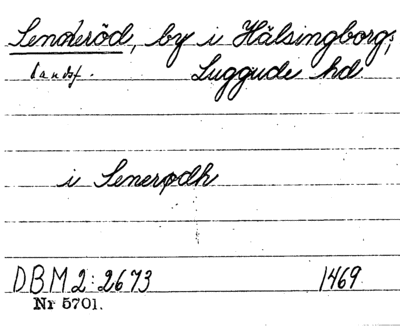 Senderöd, by i Hälsingborgs
landsf. Luggude hd
i Senerødh
DBM 2:2673 1469
Nr 5701.